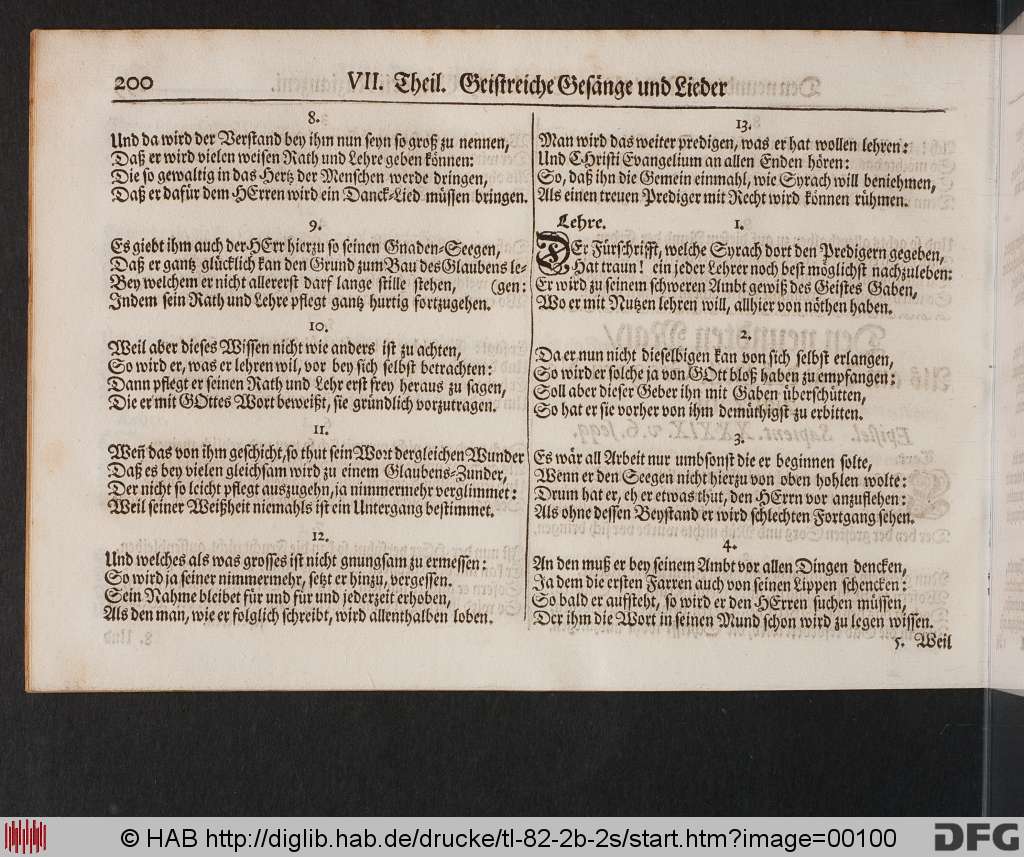 200
VII. Theil. Geistreiche Gesänge und Lieder
8.
Und da wird der Verstand bey ihm nun seyn so groß zu nennen,
Daß er wird vielen weisen Rath und Lehre geben können:
Die so gewaltig in das Hertz der Menschen werde dringen,
Daß er dafür dem HErren wird ein Danck-Lied müssen bringen.
9.
Es giebt ihm auch der HErr hierzu so seinen Gnaden-Seegen,
Daß er gantz glücklich kan den Grund zum Bau des Glaubens le-
Bey welchem er nicht allererst darf lange stille stehen, (gen:
Indem sein Rath und Lehre pflegt gantz hurtig fortzugehen.
10.
Weil aber dieses Wissen nicht wie anders ist zu achten,
So wird er, was er lehren wil, vor bey sich selbst betrachten:
Dann pflegt er seinen Rath und Lehr erst frey heraus zu sagen,
Die er mit GOttes Wort beweißt, sie gründlich vorzutragen.
11.
Weñ das von ihm geschicht, so thut sein Wort dergleichen Wunder
Daß es bey vielen gleichsam wird zu einem Glaubens-Zunder,
Der nicht so leicht pflegt auszugehn, ja nimmermehr verglimmet:
Weil seiner Weißheit niemahls ist ein Untergang bestimmet.
12.
Und welches als was grosses ist nicht gnungsam zu ermessen:
So wird ja seiner nimmermehr, setzt er hinzu, vergessen.
Sein Nahme bleibet für und für und jederzeit erhoben,
Als den man, wie er folglich schreibt, wird allenthalben loben.
13.
Man wird das weiter predigen, was er hat wollen lehren:
Und CHristi Evangelium an allen Enden hören:
So, daß ihn die Gemein einmahl, wie Syrach will beniehmen,
Als einen treuen Prediger mit Recht wird können rühmen.
Lehre. 1.
DEr Fürschrifft, welche Syrach dort den Predigern gegeben,
Hat traun! ein jeder Lehrer noch best möglichst nachzuleben:
Er wird zu seinem schweren Ambt gewiß des Geistes Gaben,
Wo er mit Nutzen lehren will, allhier von nöthen haben.
2.
Da er nun nicht dieselbigen kan von sich selbst erlangen,
So wird er solche ja von GOtt bloß haben zu empfangen:
Soll aber dieser Geber ihn mit Gaben überschütten,
So hat er sie vorher von ihm demüthigst zu erbitten.
3.
Es wär all Arbeit nur umbsonst die er beginnen solte,
Wenn er den Seegen nicht hierzu von oben hohlen wolte:
Drum hat er, eh er etwas thut, den HErrn vor anzuflehen:
Als ohne dessen Beystand er wird schlechten Fortgang sehen.
4.
An den muß er bey seinem Ambt vor allen Dingen dencken,
Ja dem die ersten Farren auch von seinen Lippen schencken:
So bald er aufsteht, so wird er den HErren suchen müssen,
Der ihm die Wort in seinen Mund schon wird zu legen wissen.
5. Weil
© HAB http://diglib.hab.de/drucke/tl-82-2b-2s/start.htm?image=00100
DFG